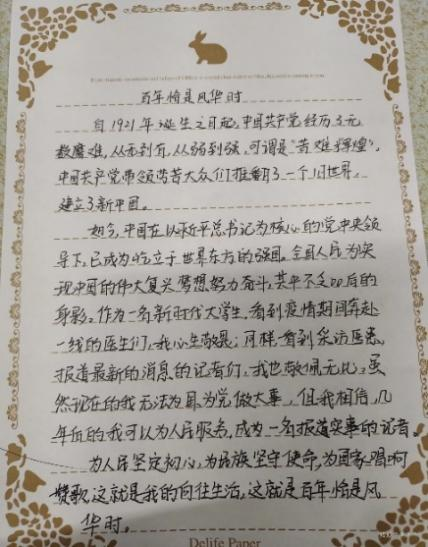 百年恰是风华时
自1921年诞生之日起,中国共产党经历了无
数磨难,从无到有,从弱到强,可谓是“苦难辉煌”,
中国共产党带领劳苦大众们推翻了一个旧世界,
建立了新中国。
如今,中国在以习近平总书记为核心的党中央领
导下,已成为屹立于世界东方的强国。全国人民为实
现中国的伟大复兴梦想努力奋斗,其中不乏00后的
身影。作为一名新时代大学生,看到疫情期间奔赴
一线的医生们,我心生敬畏;同样看到采访医患,
报道最新的消息的记者们,我也敬佩无比,虽
然现在的我无法为国为党做大事,但我相信,几
年后的我可以为人民服务,成为一名报道实事的记者。
为人民坚定初心,为民族坚守使命,为国家唱响
赞歌,这就是我的向往生活,这就是百年恰是风
华时。
Delife Paper